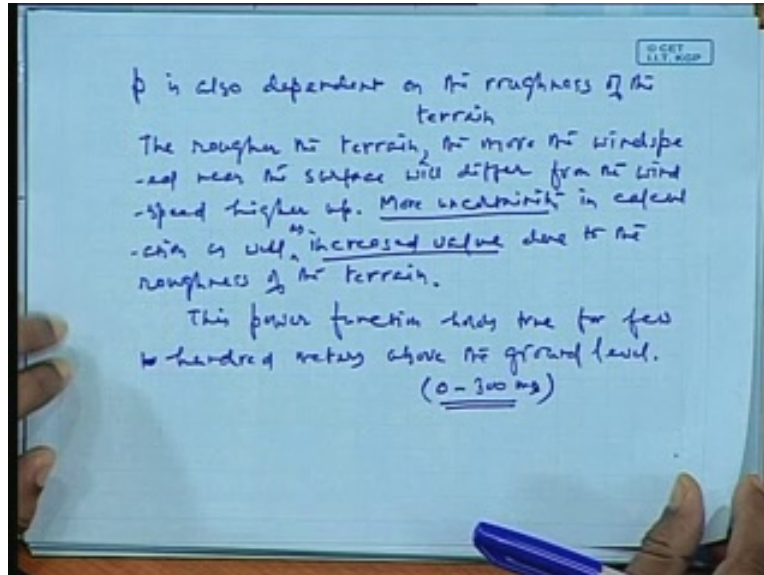 © CET
I.I.T. KGP
p is also dependent on the roughness of the
terrain
The rougher the terrain, the more the windspe
-ed near the surface will differ from the wind
-speed higher up. More uncertainity in calcul
-ation as well as increased value due to the
roughness of the terrain.
This power function holds true for few
hundred meters above the ground level.
(0 - 300 mg)